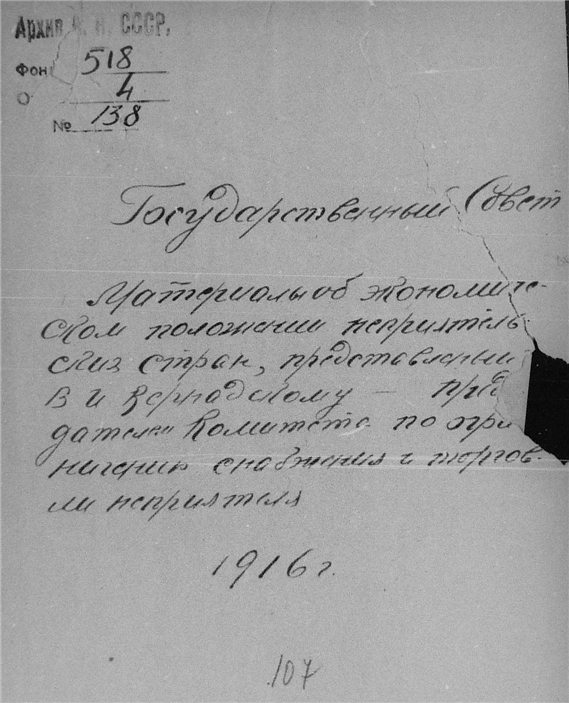 Архив А. Н. СССР,
Фон 518
О 4
№ 138
Государственный Совет
Материалы об экономиче-
ском положении неприятель-
ских стран, представленный
В И Вернадскому — пред
дателем Комитета по огра
ничению снабжения и торгов-
ли неприятеля
1916 г.
107